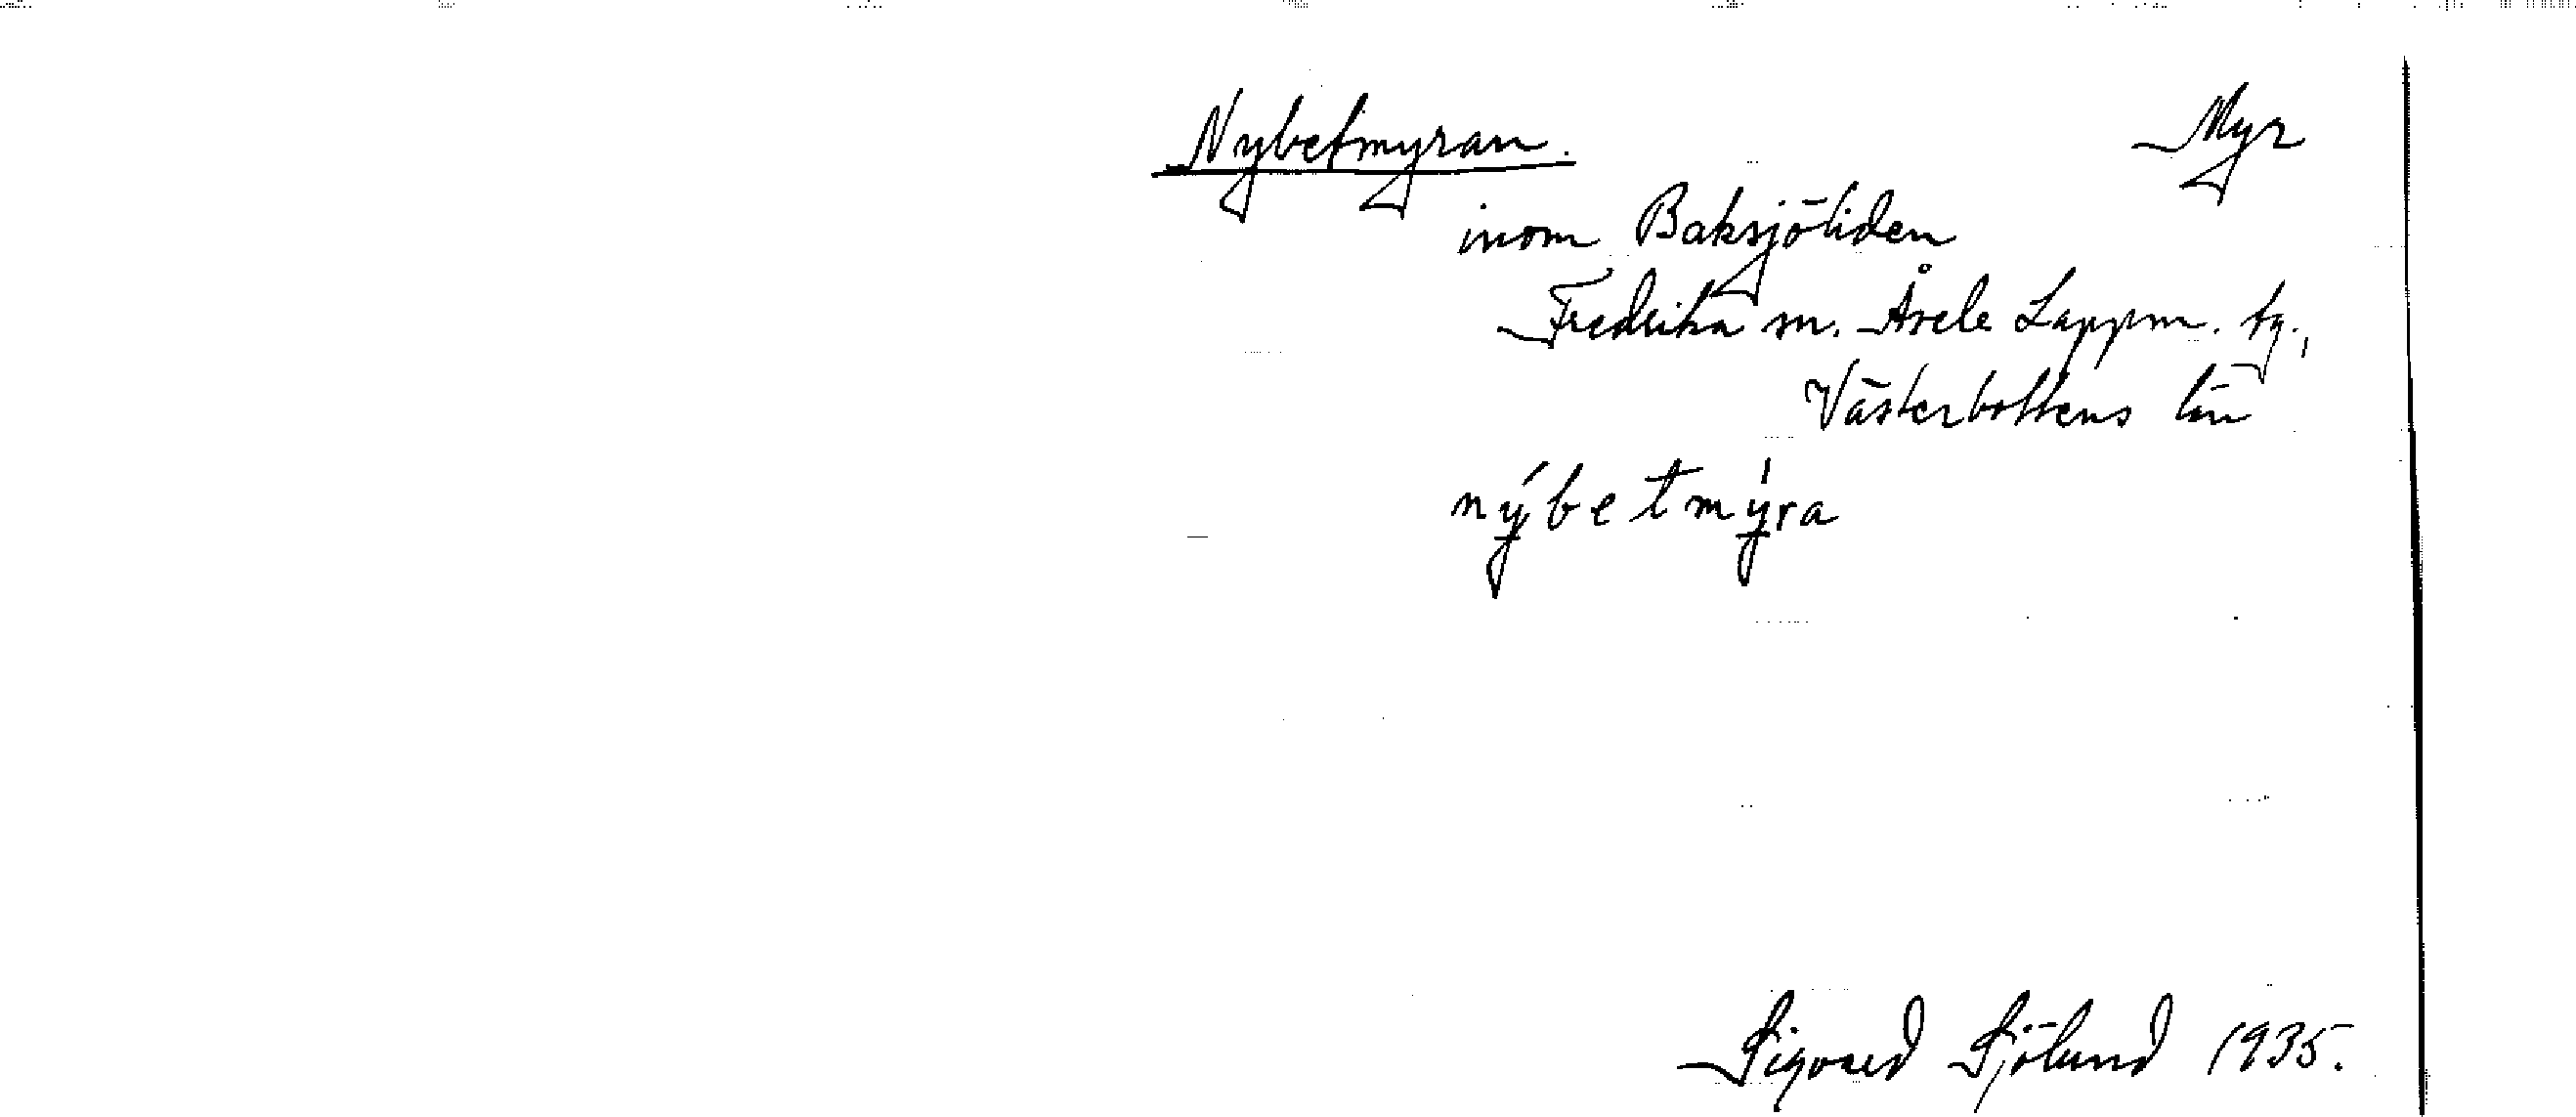 Nybetmyran.
Myr
inom Baksjöliden
Fredrika sn. Åsele Lappm. tg.,
Västerbottens län
nýbetmýra
Sigvard Sjölund 1935.